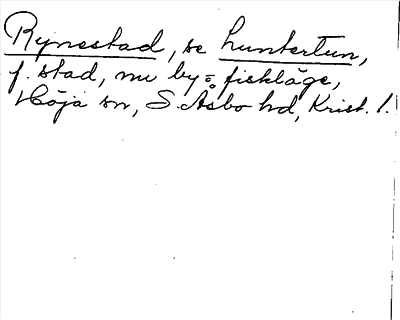 Rynestad, se Luntertun,
f. stad, nu by = fiskläge,
Höja sn, S. Åsbo hd, Krist. l.